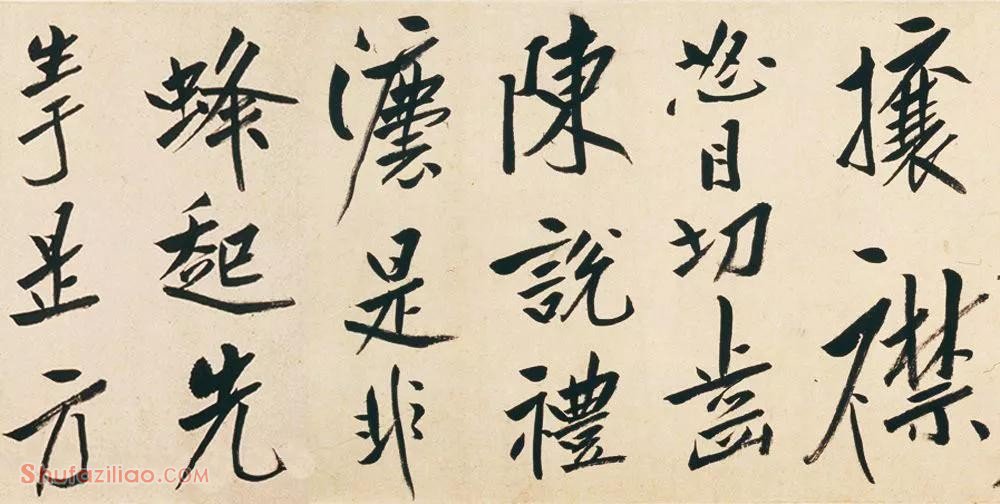 攘襟
怒目切齒
陳說禮
灋是非
蜂起先
生于是方
Shufaziliao.COM